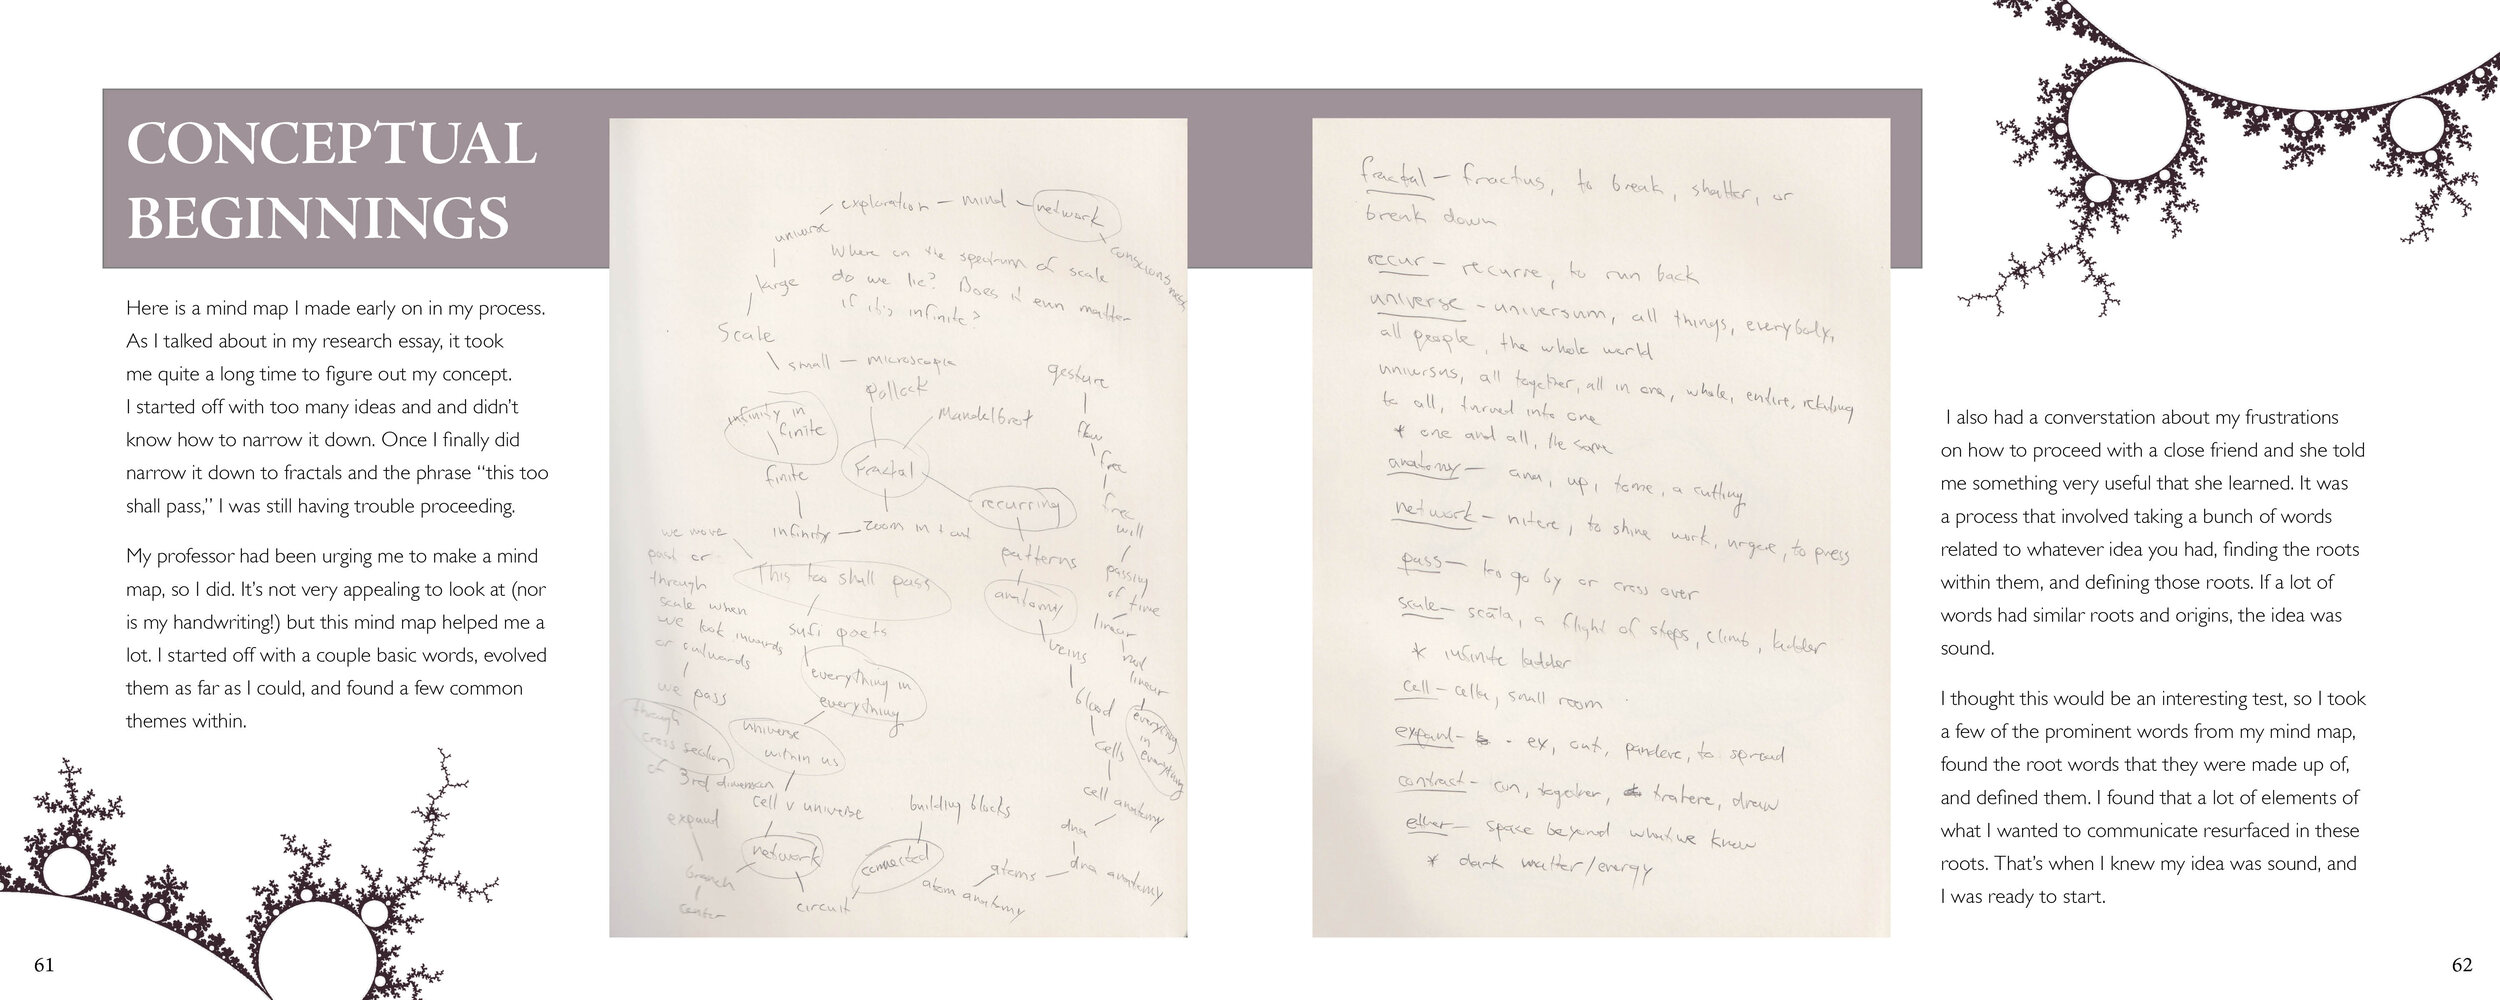 CONCEPTUAL
BEGINNINGS
Here is a mind map I made early on in my process.
As I talked about in my research essay, it took
me quite a long time to figure out my concept.
I started off with too many ideas and and didn’t
know how to narrow it down. Once I finally did
narrow it down to fractals and the phrase “this too
shall pass,” I was still having trouble proceeding.
My professor had been urging me to make a mind
map, so I did. It’s not very appealing to look at (nor
is my handwriting!) but this mind map helped me a
lot. I started off with a couple basic words, evolved
them as far as I could, and found a few common
themes within.
61
exploration – mind – network
universe
consciousness
Where on the spectrum of scale
do we lie? Does it even matter
if it's infinite?
large
Scale
small – microscopic
pollock
gesture
infinity in
finite
Mandelbrot
flow
finite
fractal
free
free
will
recurring
infinity – zoom in + out
we move
past or
through
scale when
we look inwards
or outwards
patterns
passing
of time
This too shall pass
anatomy
linear
not
linear
sufi poets
veins
everything in
everything
we pass
through
cross section
of 3rd dimension
blood
everything
in
everything
universe
within us
cells
cell v universe
building blocks
cell anatomy
expand
dna
network
connected
dna anatomy
branch
atoms
atom anatomy
circuit
center
fractal – fractus, to break, shatter, or
break down
recur – recurre, to run back
universe – universum, all things, everybody,
all people, the whole world
universus, all together, all in one, whole, entire, relating
to all, turned into one
* one and all, the same
anatomy – ana, up, tome, a cutting
network – nitere, to shine work, urgere, to press
pass – to go by or cross over
scale – scāla, a flight of steps, climb, ladder
* infinite ladder
cell – cella, small room
expand – ex, out, pandere, to spread
contract – con, together, trahere, draw
ether – space beyond what we know
* dark matter/energy
I also had a converstation about my frustrations
on how to proceed with a close friend and she told
me something very useful that she learned. It was
a process that involved taking a bunch of words
related to whatever idea you had, finding the roots
within them, and defining those roots. If a lot of
words had similar roots and origins, the idea was
sound.
I thought this would be an interesting test, so I took
a few of the prominent words from my mind map,
found the root words that they were made up of,
and defined them. I found that a lot of elements of
what I wanted to communicate resurfaced in these
roots. That’s when I knew my idea was sound, and
I was ready to start.
62